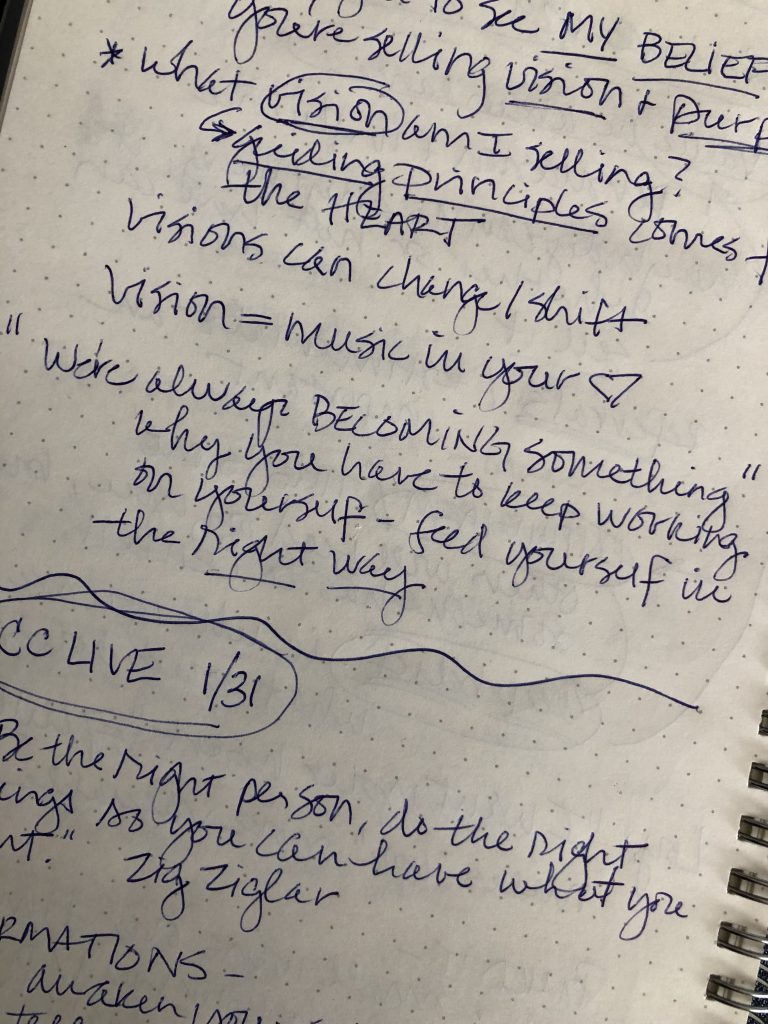 to see MY BELIEF
you're selling vision + purp
* what vision am I selling?
↳ guiding principles comes f
the HEART
visions can change/shift
vision = music in your ♡
"We're always BECOMING something"
why you have to keep working
on yourself - feed yourself in
the right way
CC LIVE 1/31
Be the right person, do the right
ings so you can have what you
nt."
Zig Ziglar
RMATIONS -
awaken